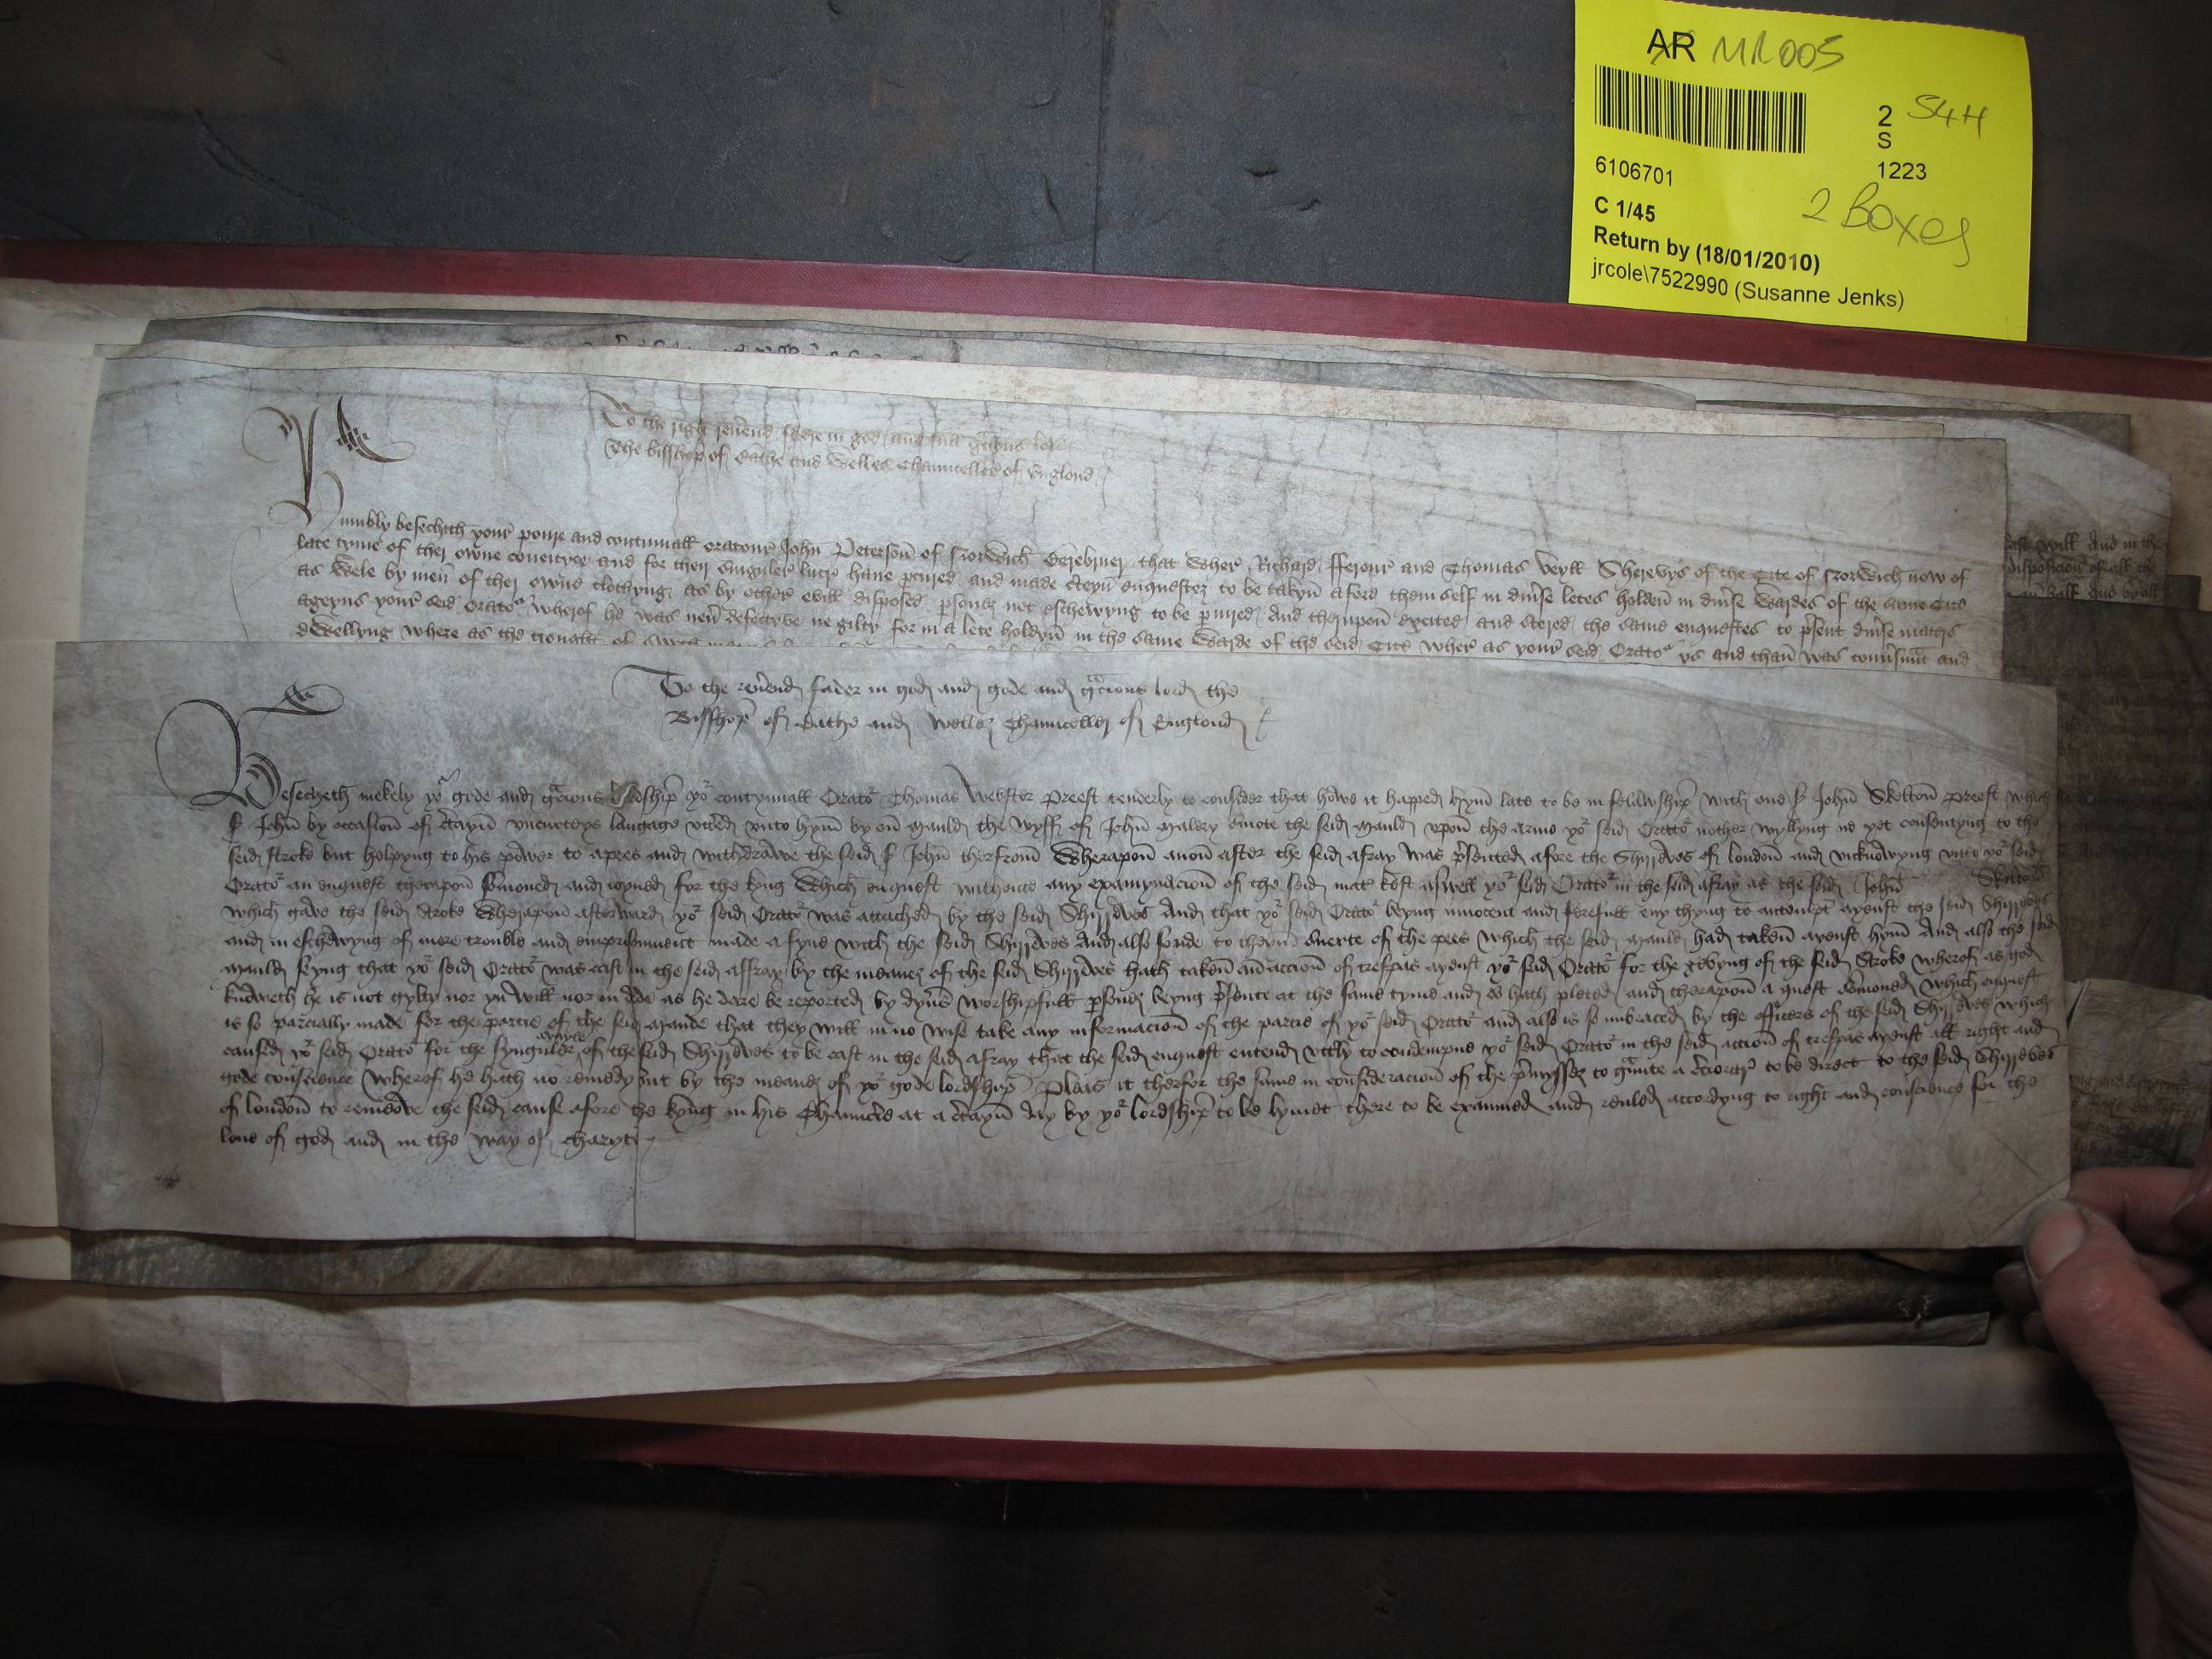 AR MR005
2 S4H
S
6106701
1223
C 1/45
2 Boxes
Return by (18/01/2010)
jrcole\7522990 (Susanne Jenks)
To the right reu'end fader in god and full gracious lord
The bisshop of Bathe and Welles Chaunceller of Englond
Humbly besechith your poure and contynuall oratour John Peterson of Norwich Berebruer that wher Richard Fferrour and Thomas Veyll Sherevys of the Cite of Norwich now of
late tyme of ther owne couetyce and for their singuler lucre haue p'cured and made c'teyn enquestez to be takyn afore them self in diu'se letes holden in diu'se Wardes of the same Cite
as wele by men of ther owne clothyng as by other evill disposed p'sones not eschewyng to be p'iured And therupon excited and stered the same enquestes to p'sent diu'se maters
ageyns your seid Orato'r wherof he was neu' defectyve ne gilty for in a lete holdyn in the same Warde of the seid Cite wher as your seid Orato'r ys and than was conu'saunt and
dwellyng where as the
last will And in the
disposicion of all the
half And by all
To the reu'end fader in god and gode and gracious lord the
Bisshop of Bathe and Wellez Chaunceller of Englond
Besecheth mekely yo'r gode and gracious lordship yo'r contynuall Orato'r Thomas Webster Preest tenderly to consider that howe it happed hym late to be in felawship with one S' John Skelton preest which
S' John by occasion of c'tayn vncurteys langage vtt'ed vnto hym by on Mauld the wyff of John Malery smote the seid Mauld vpon the arme yo'r seid Orato'r nother wyllyng ne yet consentyng to the
seid stroke but helpyng to his power to apees and withdrawe the seid S' John therfrom Wherapon anon after the seid afray was p'sented afore the Shirreves of london and vnknowyng vnto yo'r seid
Orato'r an enquest therapon somoned and ioyned for the kyng Which enquest withoute any examynacion of the seid mat' kest aswell yo'r seid Orato'r in the seid afray as the seid John Skelton
which gave the seid stroke Wherapon afterward yo'r seid Orato'r was attached by the seid Shirreves And that yo'r seid Orato'r beyng innocent and ferefull eny thyng to attempt ayenst the seid Shirreves
and in eschewyng of more trouble and emprisonment made a fyne with the seid Shirreves And also fonde to theym suerte of the pees which the seid Mauld had taken ayenst hym And also the seid
Mauld seyng that yo'r seid Orato'r was cast in the seid affray by the meanez of the seid Shirreves hath taken an accion of trespas ayenst yo'r seid Orato'r for the gevyng of the seid Stroke wherof as god
knoweth he is not gylty nor yn will nor in dede as he dare be reported by dyu's worshipfull p'sonez beyng p'sente at the same tyme and so hath pleted and therapon a quest somoned which enquest
is so parcially made for the partie of the seid Maude that they will in no wise take any informacion of the partie of yo'r seid Orato'r and also is so enbraced by the officers of the seid Shirreves which
caused yo'r seid Orato'r for the synguler avayle of the seid Shirreves to be cast in the seid afray that the seid enquest entend vtt'ly to condempne yo'r seid Orato'r in the seid accion of trespas ayenst all right and
gode conscience Wherof he hath no remedy but by the meanez of yo'r gode lordship Pleas it therfor the same in consideracion of the p'myssez to graunte a c'ciorar' to be direct to the seid Shirreves
of london to remeove the seid cause afore the kyng in his Chauncerie at a c'tayn day by yo'r lordship to be lymet there to be examined and reuled accordyng to right and conscience for the
loue of god and in the way of charyte